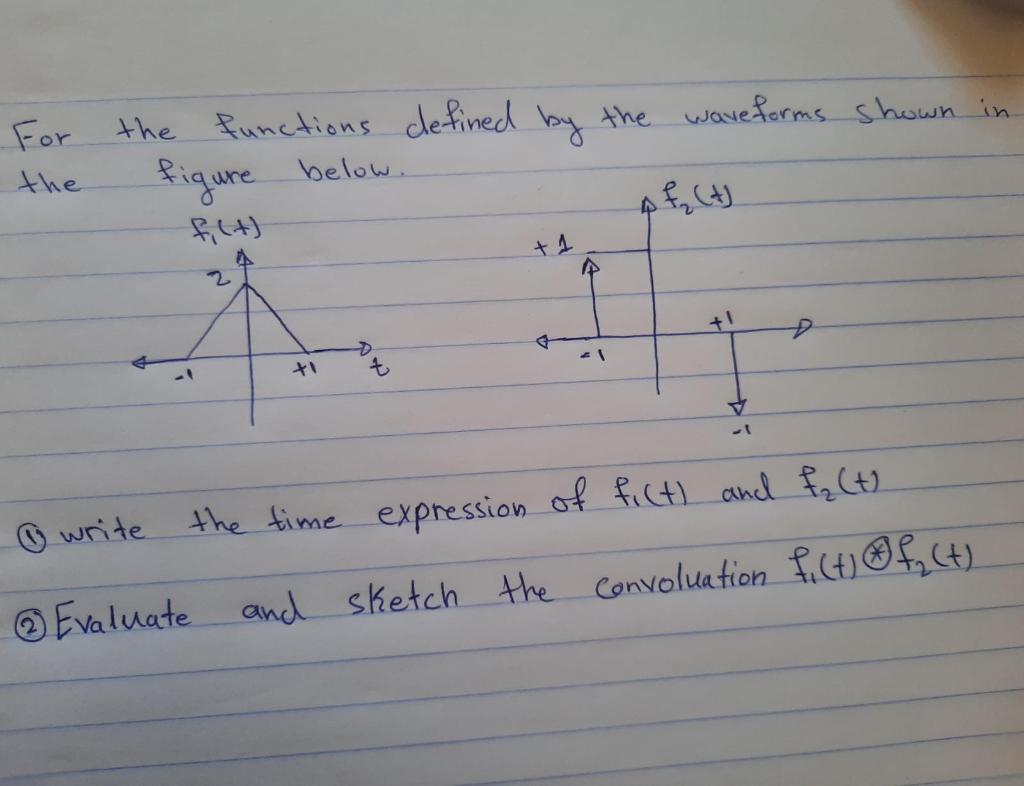 For the functions defined by the waveforms shown in
the figure below.
f₁(t)
2
-1 +1 t
f₂(t)
+1
-1 +1
-1
① write the time expression of f₁(t) and f₂(t)
② Evaluate and sketch the convoluation f₁(t) ⊛ f₂(t)